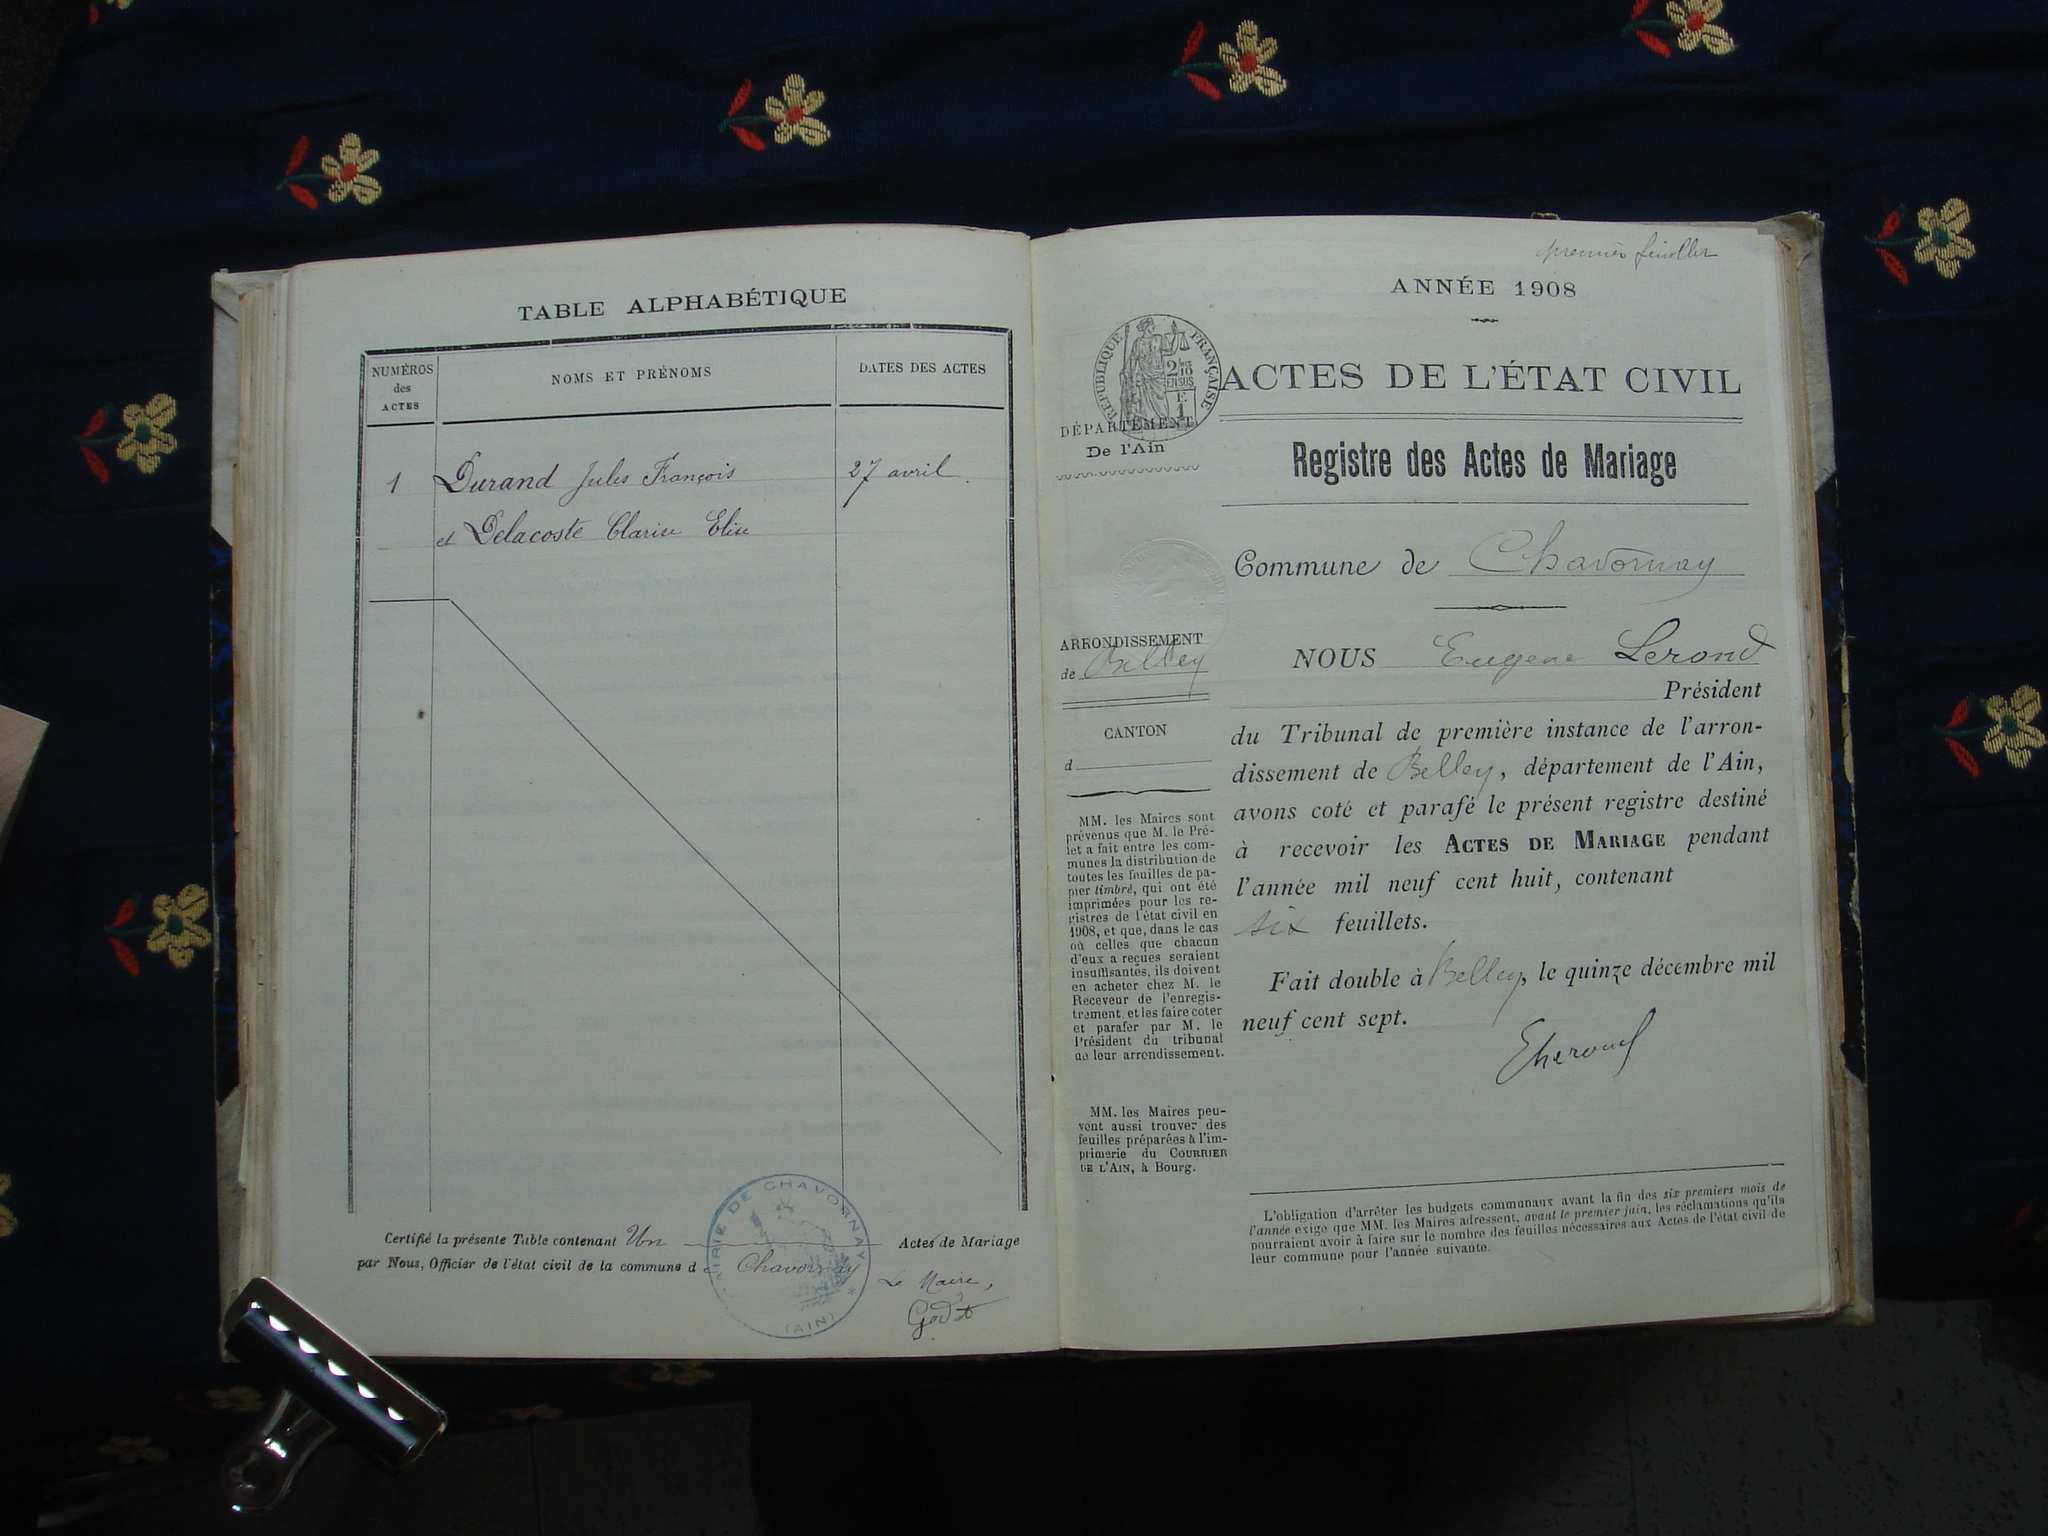 TABLE ALPHABÉTIQUE
NUMÉROS
des
ACTES
NOMS ET PRÉNOMS
DATES DES ACTES
1 Durand Jules François 27 avril
et Delacoste Clarisse Elise
Certifié la présente Table contenant Un Actes de Mariage
par Nous, Officier de l'état civil de la commune d Chavornay
MAIRIE DE CHAVORNAY * (AIN)
Le Maire,
premier feuillet
ANNÉE 1908
RÉPUBLIQUE FRANÇAISE
ACTES DE L'ÉTAT CIVIL
DÉPARTEMENT
De l'Ain
Registre des Actes de Mariage
Commune de Chavornay
ARRONDISSEMENT
de Belley
CANTON
d
MM. les Maires sont
prévenus que M. le Pré-
fet a fait entre les com-
munes la distribution de
toutes les feuilles de pa-
pier timbré, qui ont été
imprimées pour les re-
gistres de l'état civil en
1908, et que, dans le cas
où celles que chacun
d'eux a reçues seraient
insuffisantes, ils doivent
en acheter chez M. le
Receveur de l'enregis-
trement, et les faire coter
et parafer par M. le
Président du tribunal
de leur arrondissement.
MM. les Maires peu-
vent aussi trouver des
feuilles préparées à l'im-
primerie du COURRIER
DE L'AIN, à Bourg.
NOUS Eugene Lerond
Président
du Tribunal de première instance de l'arron-
dissement de Belley, département de l'Ain,
avons coté et parafé le présent registre destiné
à recevoir les ACTES DE MARIAGE pendant
l'année mil neuf cent huit, contenant
six feuillets.
Fait double à Belley, le quinze décembre mil
neuf cent sept.
L'obligation d'arrêter les budgets communaux avant la fin des six premiers mois de
l'année exige que MM. les Maires adressent, avant le premier juin, les réclamations qu'ils
pourraient avoir à faire sur le nombre des feuilles nécessaires aux Actes de l'état civil de
leur commune pour l'année suivante.